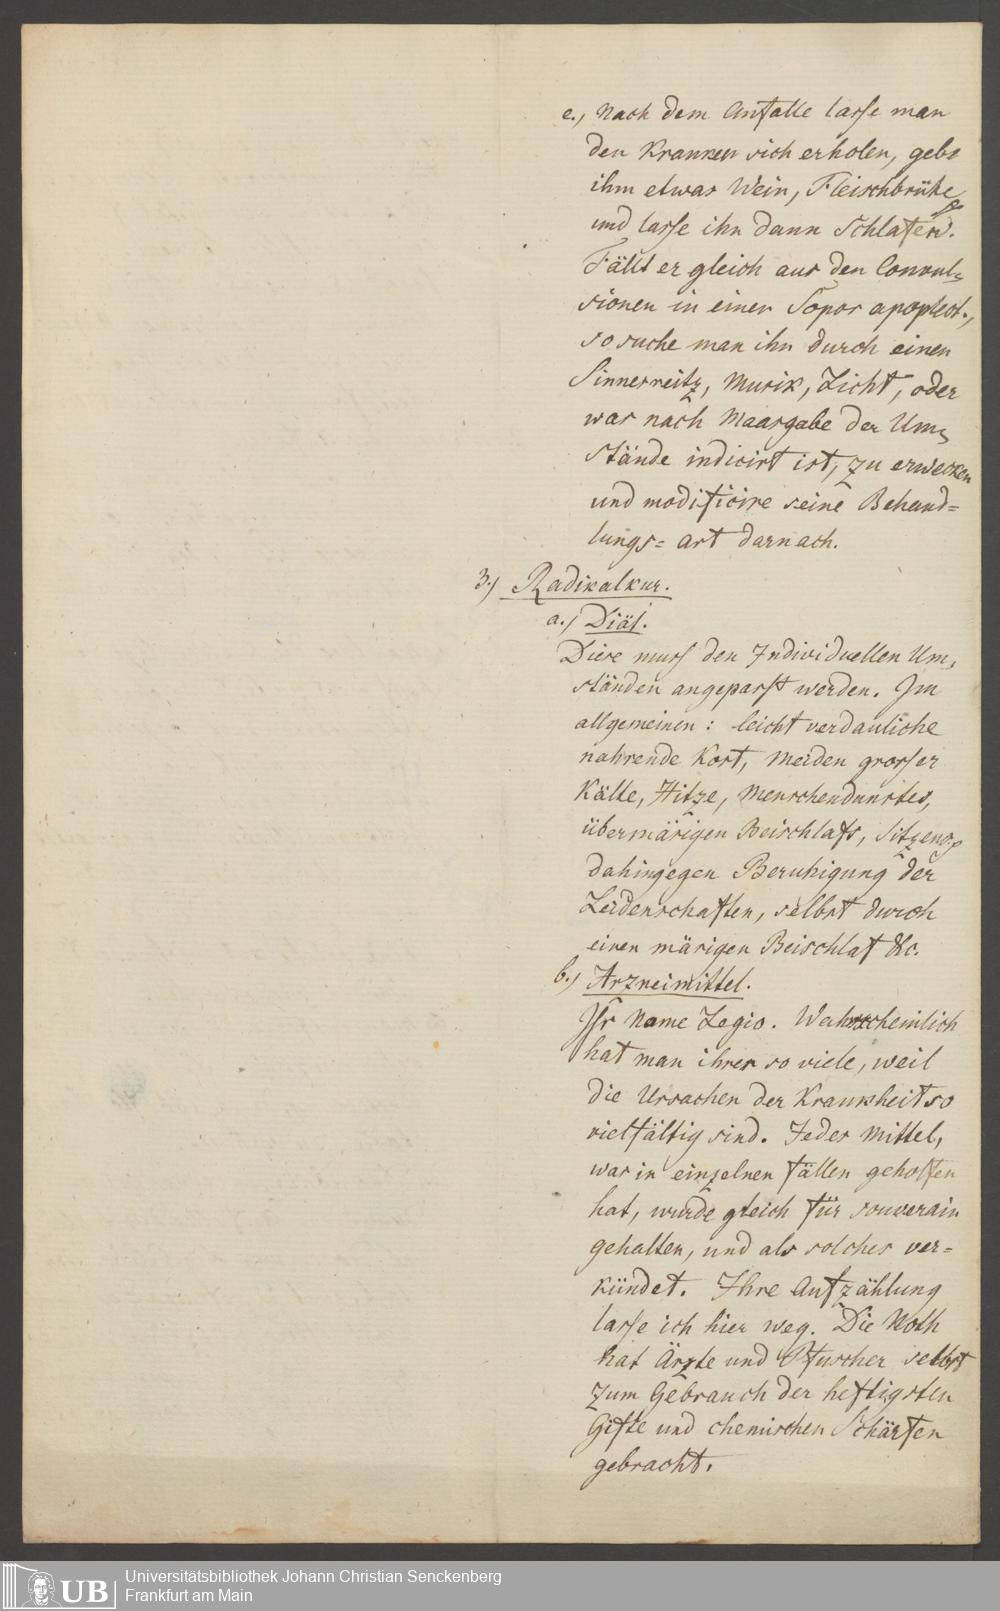 e., Nach dem Anfalle lasse man
den Kranken sich erholen, gebe
ihm etwas Wein, Fleischbrühe
und lasse ihn dann Schlafen.
Fällt er gleich aus den Convul-
sionen in einen Sopor apoplect.,
so suche man ihn durch einen
Sinnesreitz, Musik, Licht, oder
was nach Maasgabe der Um-
stände indicirt ist, zu erwecken
und modificire seine Behand=
lungs= art darnach.
3.) Radikalkur.
a.) Diät.
Diese muss den Individuellen Um-
ständen angepasst werden. Im
allgemeinen: leicht verdauliche
nahrende Kost, Meiden grosser
Kälte, Hitze, Menschendunstes,
übermäsigen Beischlafs,
dahingegen Beruhigung der
Leidenschaften, selbst durch
einen mäsigen Beischlaf &c.
b.) Arzneimittel.
Ihr Name Legio. Wahrscheinlich
hat man ihrer so viele, weil
die Ursachen der Krankheit so
vielfältig sind. Jedes Mittel,
was in einzelnen fällen geholfen
hat, wurde gleich für souverain
gehalten, und als solches ver=
kündet. Ihre Aufzählung
lasse ich hier weg. Die Noth
hat Ärzte und Pfuscher selbst
zum Gebrauch der heftigsten
Gifte und chemischen Schärfen
gebracht.
UB Universitätsbibliothek Johann Christian Senckenberg
Frankfurt am Main